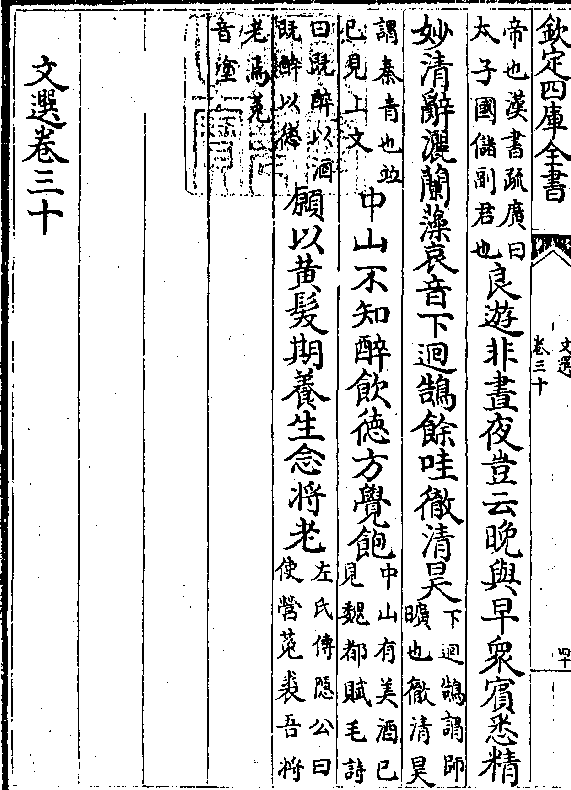 欽定四庫全書
文選
卷三十
四十
帝也漢書疏廣曰
太子國儲副君也
良遊非晝夜豈云晚與早衆賓悉精
妙清辭灑蘭藻哀音下迴鵠餘哇徹清昊
下迴鵠謂師
曠也徹清昊
謂秦青也竝
已見上文
中山不知醉飲徳方覺飽
中山有美酒已
見魏都賦毛詩
曰既醉以酒
既醉以徳
願以黄髮期養生念將老
左氏傳隱公曰
使營菟裘吾將
老焉菟
音塗
文選卷三十